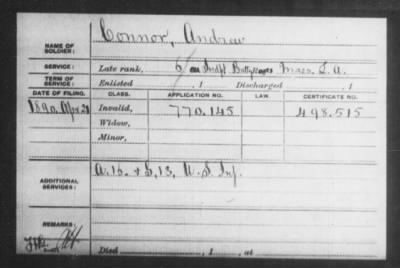 NAME OF SOLDIER: Connor, Andrew
SERVICE: Late rank, 6 Indpt Batty Mass. L. A.
TERM OF SERVICE: Enlisted , 1 Discharged , 1
DATE OF FILING. CLASS. APPLICATION NO. LAW. CERTIFICATE NO.
1890. Apr. 21 Invalid, 770.145 498.515
Widow,
Minor,
ADDITIONAL SERVICES: A. 15. & G. 13. U. S. Inf.
REMARKS:
Died , 1 , at